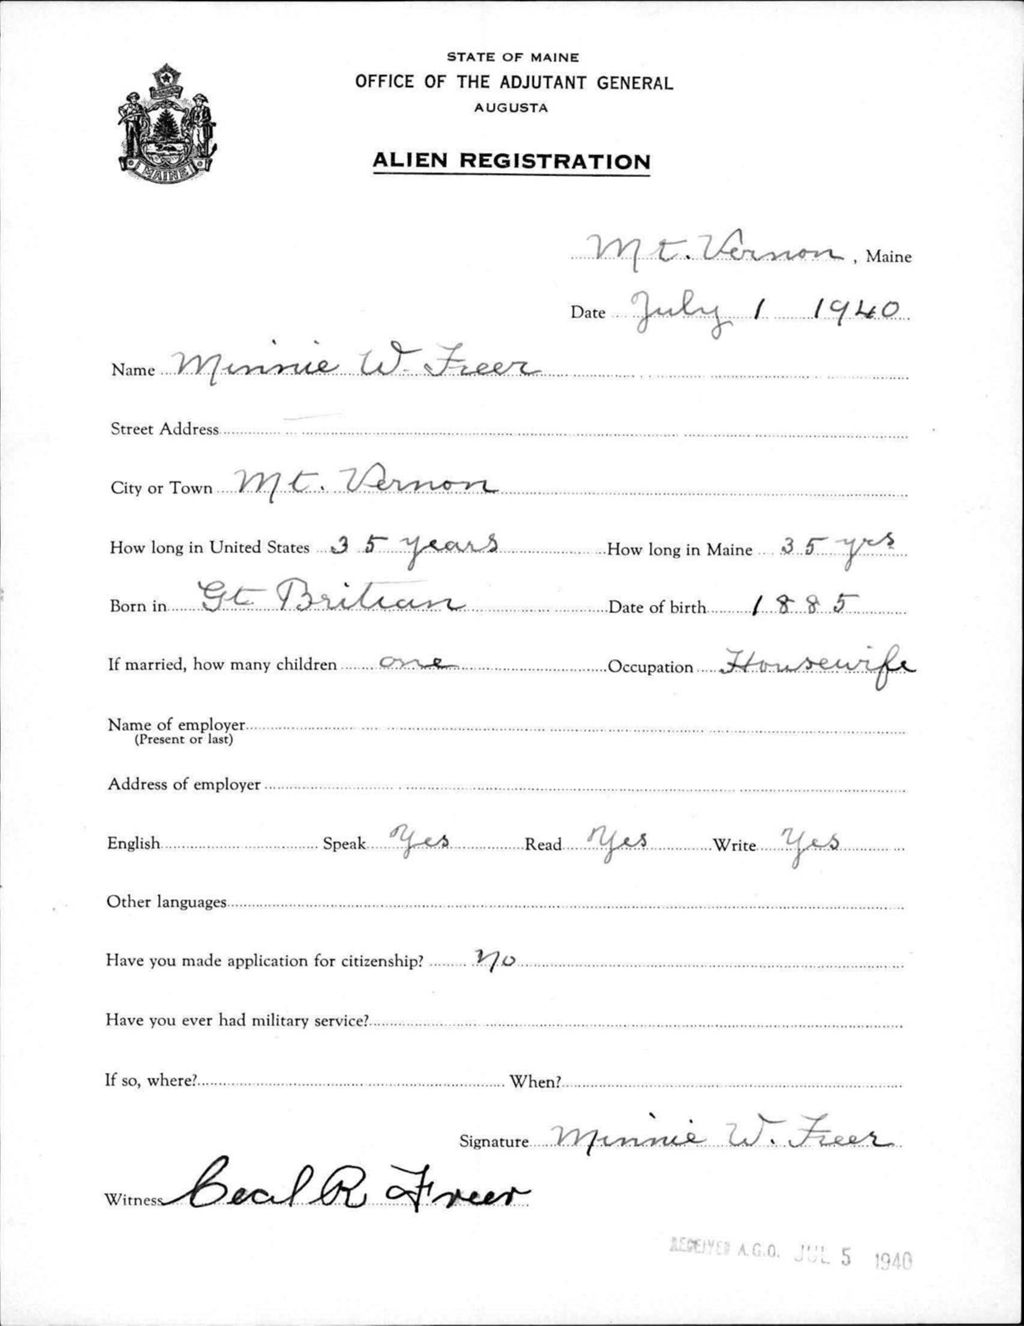 STATE OF MAINE
OFFICE OF THE ADJUTANT GENERAL
AUGUSTA
ALIEN REGISTRATION
MAINE
Mt. Vernon, Maine
Date July 1 1940
Name Minnie W. Freer
Street Address
City or Town Mt. Vernon
How long in United States 35 years How long in Maine 35 yrs
Born in Gt Britian Date of birth 1885
If married, how many children one Occupation Housewife
Name of employer
(Present or last)
Address of employer
English Speak Yes Read Yes Write Yes
Other languages
Have you made application for citizenship? No
Have you ever had military service?
If so, where? When?
Signature Minnie W. Freer
Witness Cecil R Freer
RECEIVED A.G.O. JUL 5 1940